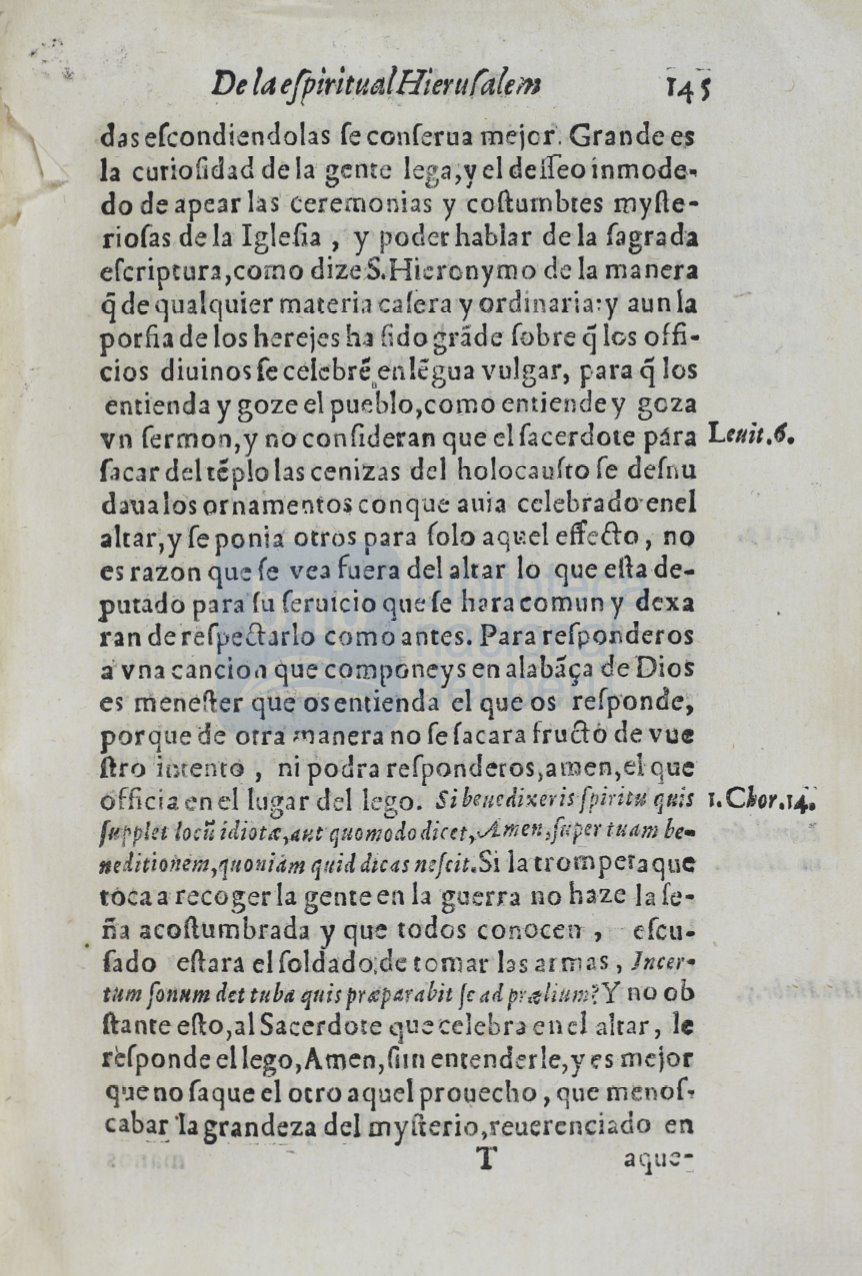 De la eſpiritual Hieruſalem 145
das eſcondiendolas ſe conſerua mejor. Grande es
la curioſidad de la gente lega, y el deſſeo inmode-
do de apear las ceremonias y coſtumbres myſte-
rioſas de la Igleſia , y poder hablar de la ſagrada
eſcriptura, como dize S. Hieronymo de la manera
q̃ de qualquier materia caſera y ordinaria: y aun la
porfia de los herejes ha ſido grãde ſobre q̃ los offi-
cios diuinos ſe celebrẽ en lẽgua vulgar, para q̃ los
entienda y goze el pueblo, como entiende y goza
vn ſermon, y no conſideran que el ſacerdote para
Leuit. 6.
ſacar del tẽplo las cenizas del holocauſto ſe deſnu
daua los ornamentos con que auia celebrado en el
altar, y ſe ponia otros para ſolo aquel effecto, no
es razon que ſe vea fuera del altar lo que eſta de-
putado para ſu ſeruicio que ſe hara comun y dexa
ran de reſpectarlo como antes. Para reſponderos
a vna cancion que componeys en alabãça de Dios
es meneſter que os entienda el que os reſponde,
porque de otra manera no ſe ſacara fructo de vue
ſtro intento , ni podra reſponderos, amen, el que
officia en el lugar del lego. Si benedixeris ſpiritu quis
1. Chor. 14.
ſupplet locũ idiotæ, aut quomodo dicet, Amen, ſuper tuam be-
neditionem, quoniam quid dicas neſcit. Si la trompeta que
toca a recoger la gente en la guerra no haze la ſe-
ña acoſtumbrada y que todos conocen , eſcu-
ſado eſtara el ſoldado, de tomar las armas , Incer-
tum ſonum det tuba quis præparabit ſe ad prælium? Y no ob
ſtante eſto, al Sacerdote que celebra en el altar, le
reſponde el lego, Amen, ſin entenderle, y es mejor
que no ſaque el otro aquel prouecho, que menoſ-
cabar la grandeza del myſterio, reuerenciado en
T aque-